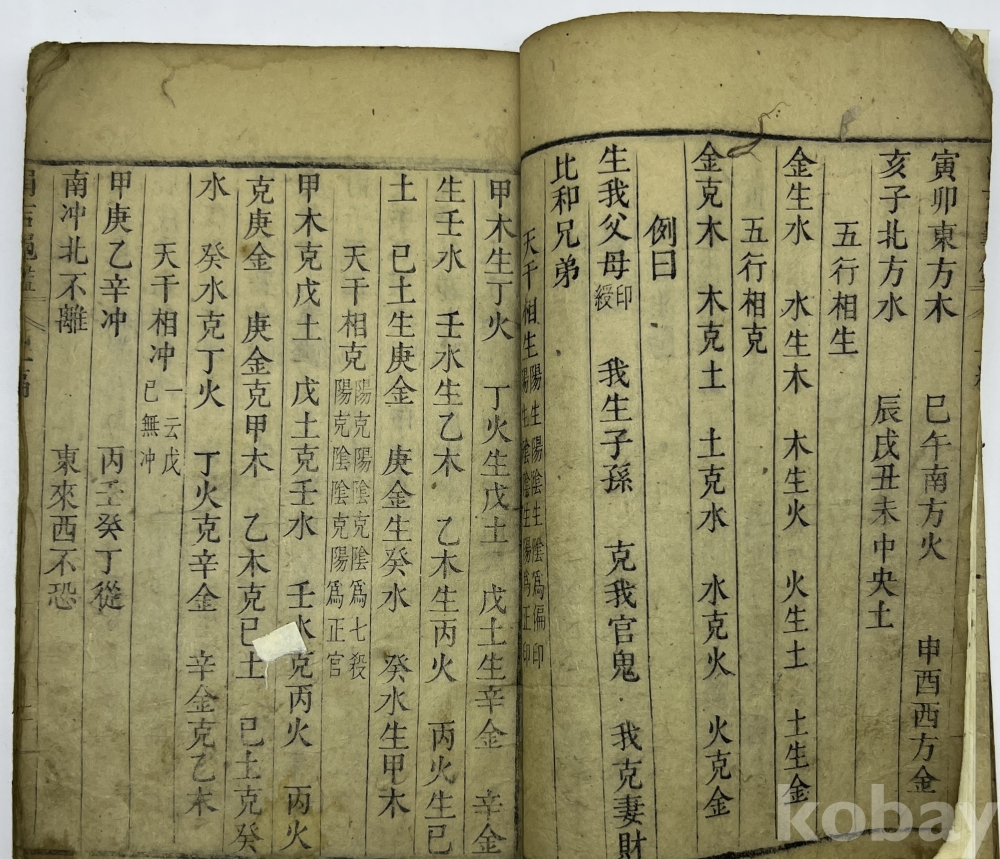 寅卯東方木 巳午南方火 申酉西方金
亥子北方水 辰戌丑未中央土
五行相生
金生水 水生木 木生火 火生土 土生金
五行相克
金克木 木克土 土克水 水克火 火克金
例曰
生我父母印綬 我生子孫 克我官鬼 我克妻財
比和兄弟
天干相生陽生陽陰生陰為偏印陽生陰陰生陽為正印
甲木生丁火 丁火生戊土 戊土生辛金 辛金
生壬水 壬水生乙木 乙木生丙火 丙火生已
土 已土生庚金 庚金生癸水 癸水生甲木
天干相克陽克陽陰克陰為七殺陽克陰陰克陽為正官
甲木克戊土 戊土克壬水 壬水克丙火 丙火
克庚金 庚金克甲木 乙木克已土 已土克癸
水 癸水克丁火 丁火克辛金 辛金克乙木
天干相冲一云戊已無冲
甲庚乙辛冲 丙壬癸丁從
南冲北不離 東來西不恐
kobay